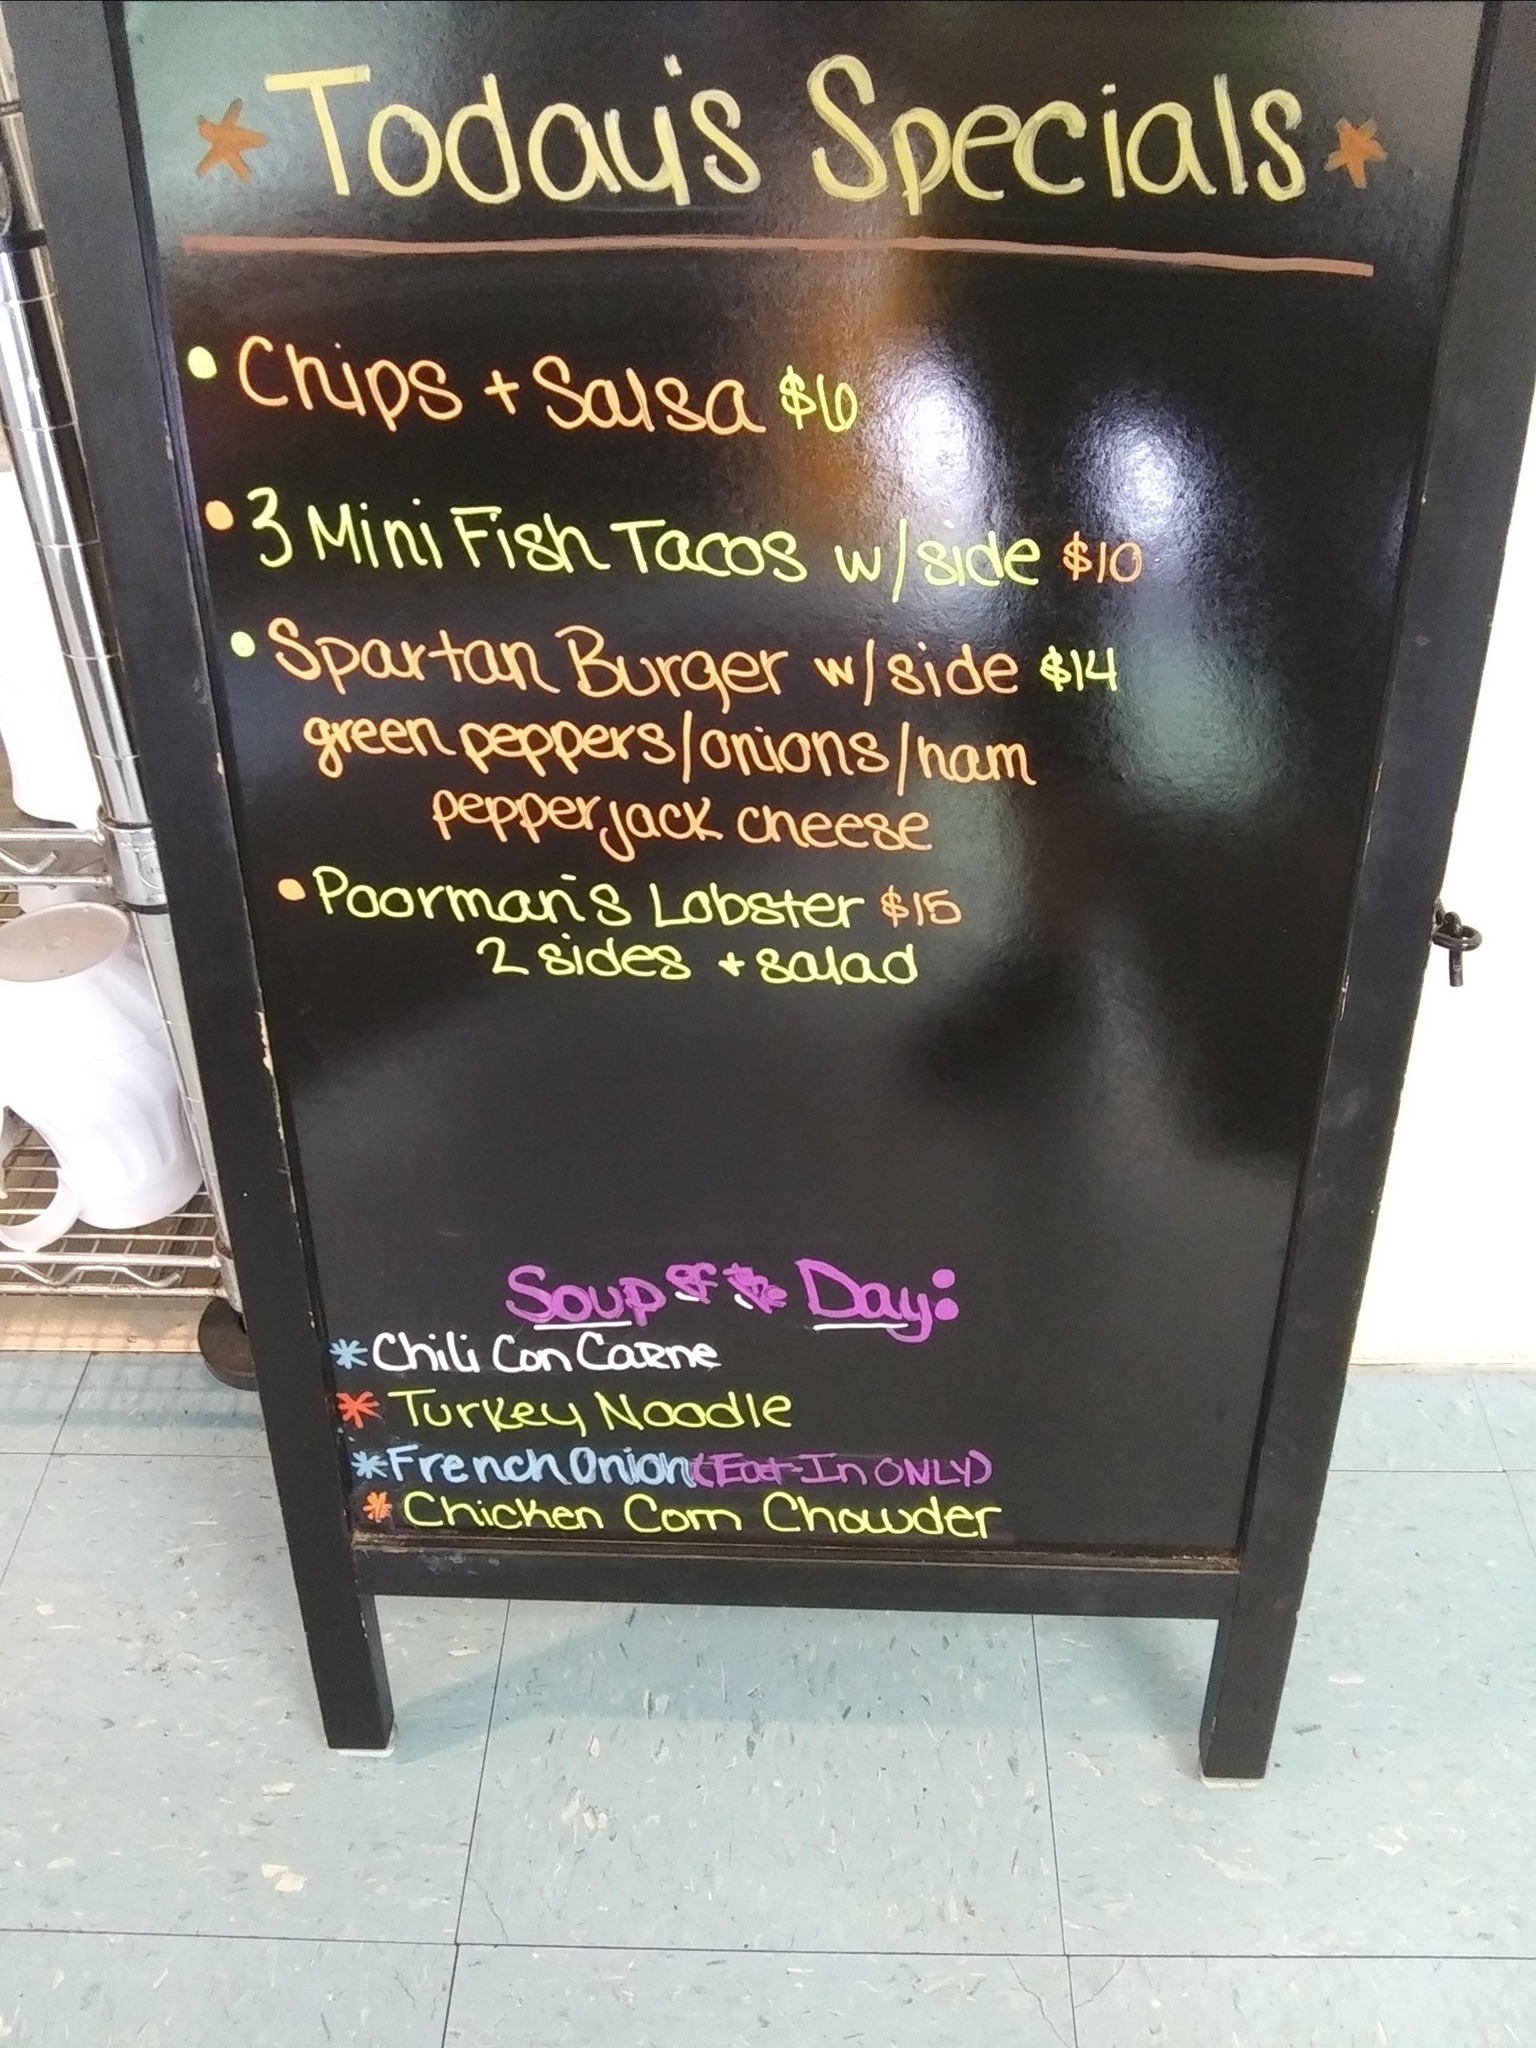 Today's Specials
Chips + Salsa $6
3 Mini Fish Tacos w/side $10
Spartan Burger w/side $14
green peppers/onions/ham
pepperjack cheese
Poorman's Lobster $15
2 sides + salad
Soup of the Day:
Chili Con Carne
Turkey Noodle
French Onion (Eat-In ONLY)
Chicken Corn Chowder